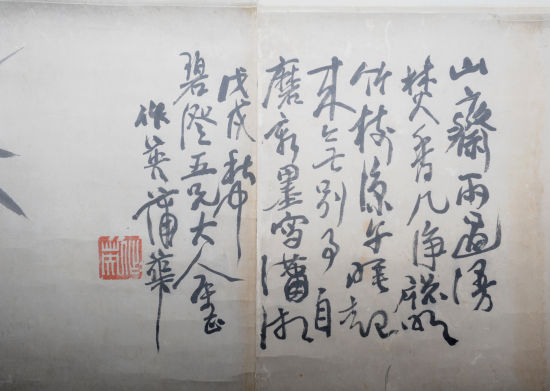 山齋雨過漫
焚香几淨牕明
竹枝涼午睡起
來無別事自
磨新墨寫瀟湘
戊戌秋仲
碧澄五兄大人屬正
作英蒲華